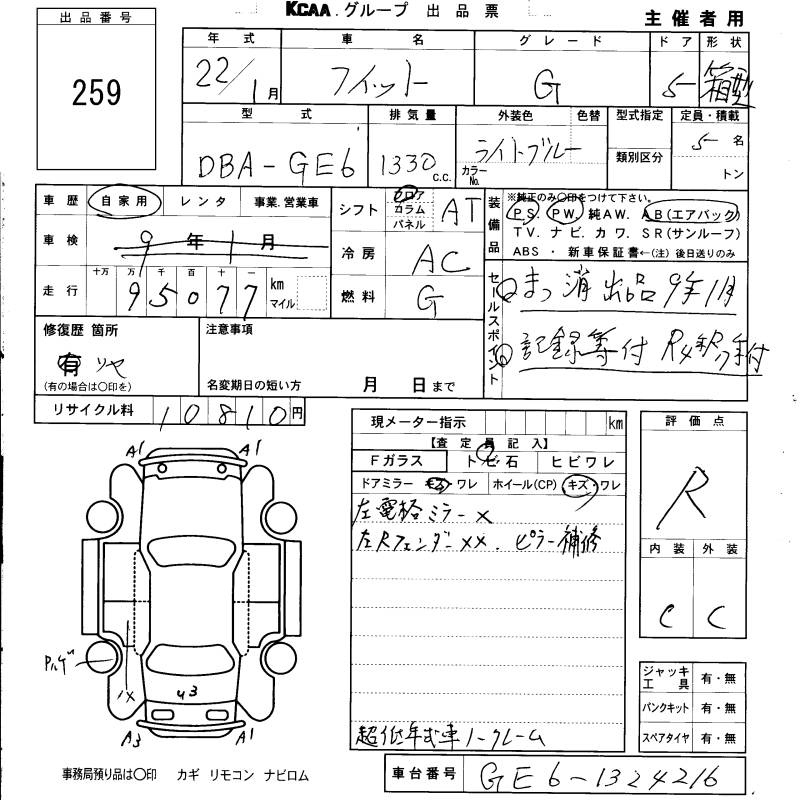 KCAA.グループ 出品票
主催者用
出品番号
259
年式 車名 グレード ドア 形状
22/1月 フィット G 5 箱型
型式 排気量 外装色 色替 型式指定 定員・積載
DBA-GE6 1330 c.c. ライトブルー 5 名
カラーNo. 類別区分 トン
車歴 自家用 レンタ 事業.営業車
車検 9年1月
走行 十万 万 千 百 十 一
95077 km マイル
シフト フロア コラム パネル AT
冷房 AC
燃料 G
装備品 ※純正のみ〇印をつけて下さい。
P.S. PW. 純AW. AB(エアバック)
T V. ナビ. カワ. S R(サンルーフ)
ABS ・ 新車保証書←(注) 後日送りのみ
セールスポイント
まっ消出品 9年1月
記録等付
修復歴 箇所 注意事項
有 リヤ
(有の場合は〇印を) 名変期日の短い方 月 日まで
リサイクル料 10810円
現メーター指示 km
【査定員記入】
Fガラス トビ石 ヒビワレ
ドアミラー キズ・ワレ ホイール(CP) キズ・ワレ
左電格ミラー×
左Rフェンダー××. ピラー補修
超低年式車ノークレーム
評価点
R
内装 外装
C C
A1 A1
Rルーフ
1X
U3
A3 A1
ジャッキ工具 有・無
パンクキット 有・無
スペアタイヤ 有・無
事務局預り品は〇印 カギ リモコン ナビロム
車台番号 GE6-1324216